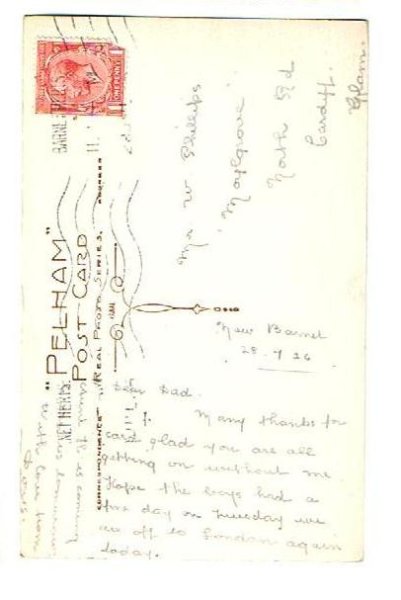 "PELHAM"
POST CARD
REAL PHOTO SERIES.
CORRESPONDENCE
ADDRESS
ONE PENNY
BARNET
HERTS
Mr W Phillips
"Maylgrove"
North Rd
Cardiff.
Glam.
New Barnet
28.7.26
Dear Dad.
Many thanks for
card glad you are all
getting on without me
Hope the boys had a
fine day on Tuesday we
are off to London again
today.
With love from
Doris.